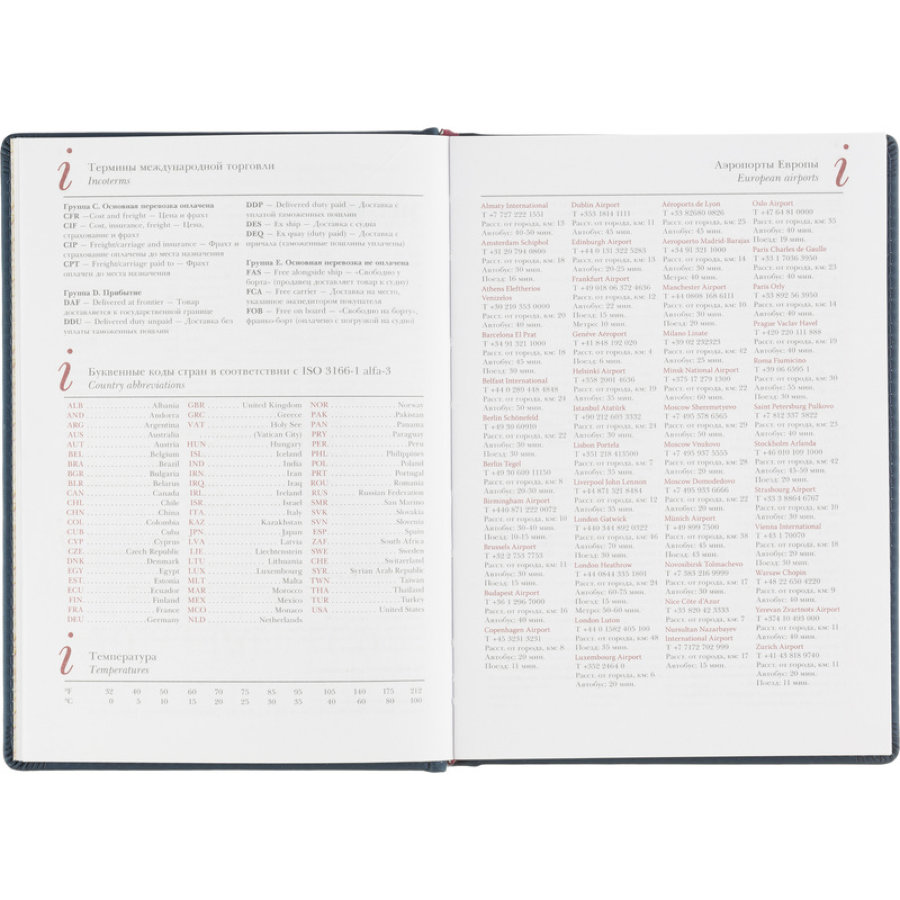 Термины международной торговли
Incoterms
Группа C. Основная перевозка оплачена
CFR —Cost and freight — Цена и фрахт
CIF — Cost, insurance, freight — Цена,
страхование и фрахт
CIP — Freight/carriage and insurance — Фрахт и
страхование оплачены до места назначения
CPT — Freight/carriage paid to — Фрахт
оплачен до места назначения
Группа D. Прибытие
DAF — Delivered at frontier — Товар
доставляется к государственной границе
DDU — Delivered duty unpaid — Доставка без
уплаты таможенных пошлин
DDP — Delivered duty paid — Доставка с
уплатой таможенных пошлин
DES — Ex ship — Доставка с судна
DEQ — Ex quay (duty paid) — Доставка с
причала (таможенные пошлины уплачены)
Группа E. Основная перевозка не оплачена
FAS — Free alongside ship — «Свободно у
борта» (продавец доставляет товар к судну)
FCA — Free carrier — Доставка на место,
указанное экспедитором покупателя
FOB — Free on board — «Свободно на борту»,
франко-борт (оплачено с погрузкой на судно)
Буквенные коды стран в соответствии с ISO 3166-1 alfa-3
Country abbreviations
ALB Albania
AND Andorra
ARG Argentina
AUS Australia
AUT Austria
BEL Belgium
BRA Brazil
BGR Bulgaria
BLR Belarus
CAN Canada
CHL Chile
CHN China
COL Colombia
CUB Cuba
CYP Cyprus
CZE Czech Republic
DNK Denmark
EGY Egypt
EST Estonia
ECU Ecuador
FIN Finland
FRA France
DEU Germany
GBR United Kingdom
GRC Greece
VAT Holy See
(Vatican City)
HUN Hungary
ISL Iceland
IND India
IRN Iran
IRQ Iraq
IRL Ireland
ISR Israel
ITA Italy
KAZ Kazakhstan
JPN Japan
LVA Latvia
LIE Liechtenstein
LTU Lithuania
LUX Luxembourg
MLT Malta
MAR Morocco
MEX Mexico
MCO Monaco
NLD Netherlands
NOR Norway
PAK Pakistan
PAN Panama
PRY Paraguay
PER Peru
PHL Philippines
POL Poland
PRT Portugal
ROU Romania
RUS Russian Federation
SMR San Marino
SVK Slovakia
SVN Slovenia
ESP Spain
ZAF South Africa
SWE Sweden
CHE Switzerland
SYR Syrian Arab Republic
TWN Taiwan
THA Thailand
TUR Turkey
USA United States
Температура
Temperatures
°F 32 40 50 60 70 75 85 95 105 140 175 212
°C 0 5 10 15 20 25 30 35 40 60 80 100
Аэропорты Европы
European airports
Almaty International
T +7 727 222 1551
Расст. от города, км: 13
Автобус: 40-50 мин.
Amsterdam Schiphol
T +31 20 794 0800
Расст. от города, км: 18
Автобус: 30 мин.
Поезд: 16 мин.
Athens Eleftherios
Venizelos
T +30 210 353 0000
Расст. от города, км: 20
Автобус: 40 мин.
Barcelona El Prat
T +34 91 321 1000
Расст. от города, км: 18
Автобус: 45 мин.
Belfast International
T +44 0 289 448 4848
Расст. от города, км: 24
Автобус: 50 мин.
Berlin Schönefeld
T +49 30 60910
Расст. от города, км: 22
Автобус: 30 мин.
Berlin Tegel
T +49 30 609 11150
Расст. от города, км: 8
Автобус: 20-30 мин.
Birmingham Airport
T +440 871 222 0072
Расст. от города, км: 10
Автобус: 30-40 мин.
Поезд: 10-15 мин.
Brussels Airport
T +32 2 753 7753
Расст. от города, км: 11
Автобус: 30 мин.
Поезд: 15 мин.
Budapest Airport
T +36 1 296 7000
Расст. от города, км: 16
Автобус: 40 мин.
Copenhagen Airport
T +45 3231 3231
Расст. от города, км: 8
Автобус: 20 мин.
Поезд: 11 мин.
Dublin Airport
T +353 1814 1111
Расст. от города, км: 11
Автобус: 45 мин.
Edinburgh Airport
T +44 0 131 322 5283
Расст. от города, км: 13
Автобус: 20-25 мин.
Frankfurt Airport
T +49 018 06 372 4636
Расст. от города, км: 12
Автобус: 22 мин.
Поезд: 15 мин.
Метро: 10 мин.
Genève Aéroport
T +41 848 192 020
Расст. от города, км: 4
Поезд: 6 мин.
Helsinki Airport
T +358 2001 4636
Расст. от города, км: 19
Автобус: 35 мин.
Istanbul Atatürk
T +90 212 463 3332
Расст. от города, км: 24
Автобус: 30 мин.
Lisbon Portela
T +351 218 413500
Расст. от города, км: 7
Автобус: 35 мин.
Liverpool John Lennon
T +44 871 521 8484
Расст. от города, км: 12
Автобус: 35 мин.
London Gatwick
T +440 344 892 0322
Расст. от города, км: 46
Автобус: 70 мин.
Поезд: 30 мин.
London Heathrow
T +44 0844 335 1801
Расст. от города, км: 24
Автобус: 60-75 мин.
Поезд: 15 мин.
Метро: 50-60 мин.
London Luton
T +44 0 1582 405 100
Расст. от города, км: 48
Поезд: 35 мин.
Luxembourg Airport
T +352 2464 0
Расст. от города, км: 6
Автобус: 20 мин.
Aéroports de Lyon
T +33 82680 0826
Расст. от города, км: 25
Автобус: 45 мин.
Aeroporto Madrid-Barajas
T +34 91 321 1000
Расст. от города, км: 14
Автобус: 30 мин.
Поезд: 40 мин.
Manchester Airport
T +44 0808 168 6111
Расст. от города, км: 10
Автобус: 30 мин.
Поезд: 20 мин.
Milano Linate
T +39 02 232323
Расст. от города, км: 42
Автобус: 25 мин.
Minsk National Airport
T +375 17 279 1300
Расст. от города, км: 42
Автобус: 60 мин.
Moscow Sheremetyevo
T +7 495 578 6565
Расст. от города, км: 29
Автобус: 50 мин.
Moscow Vnukovo
T +7 495 937 5555
Расст. от города, км: 28
Автобус: 20 мин.
Moscow Domodedovo
T +7 495 933 6666
Расст. от города, км: 22
Автобус: 20 мин.
Münich Airport
T +49 899 7500
Расст. от города, км: 38
Автобус: 45 мин.
Поезд: 45 мин.
Novosibirsk Tolmachevo
T +7 383 216 9999
Расст. от города, км: 17
Автобус: 30 мин.
Nice Côte d'Azur
T +33 820 42 3333
Расст. от города, км: 7
Nursultan Nazarbayev
International Airport
T +7 7172 702 999
Расст. от города, км: 17
Автобус: 15 мин.
Oslo Airport
T +47 64 81 0000
Расст. от города, км: 35
Автобус: 40 мин.
Поезд: 19 мин.
Paris Charles de Gaulle
T +33 1 7036 3950
Расст. от города, км: 23
Автобус: 40 мин.
Paris Orly
T +33 892 56 3950
Расст. от города, км: 14
Автобус: 40 мин.
Prague Vaclav Havel
T +420 220 111 888
Расст. от города, км: 19
Автобус: 30 мин.
Roma Fiumicino
T +39 06 6595 1
Расст. от города, км: 23
Автобус: 35 мин.
Saint Petersburg Pulkovo
T +7 812 337 3822
Расст. от города, км: 23
Автобус: 40 мин.
Stockholm Arlanda
T +46 010 109 1000
Расст. от города, км: 42
Автобус: 45-59 мин.
Поезд: 20 мин.
Strasbourg Airport
T +33 3 8864 6767
Расст. от города, км: 10
Автобус: 30 мин.
Vienna International
T +43 1 70070
Расст. от города, км: 18
Автобус: 20 мин.
Поезд: 30 мин.
Warsaw Chopin
T +48 22 650 4220
Расст. от города, км: 9
Автобус: 40 мин.
Yerevan Zvartnots Airport
T +374 10 493 000
Расст. от города, км: 11
Автобус: 40 мин.
Zurich Airport
T +41 43 818 9740
Расст. от города, км: 11
Автобус: 20 мин.
Поезд: 11 мин.